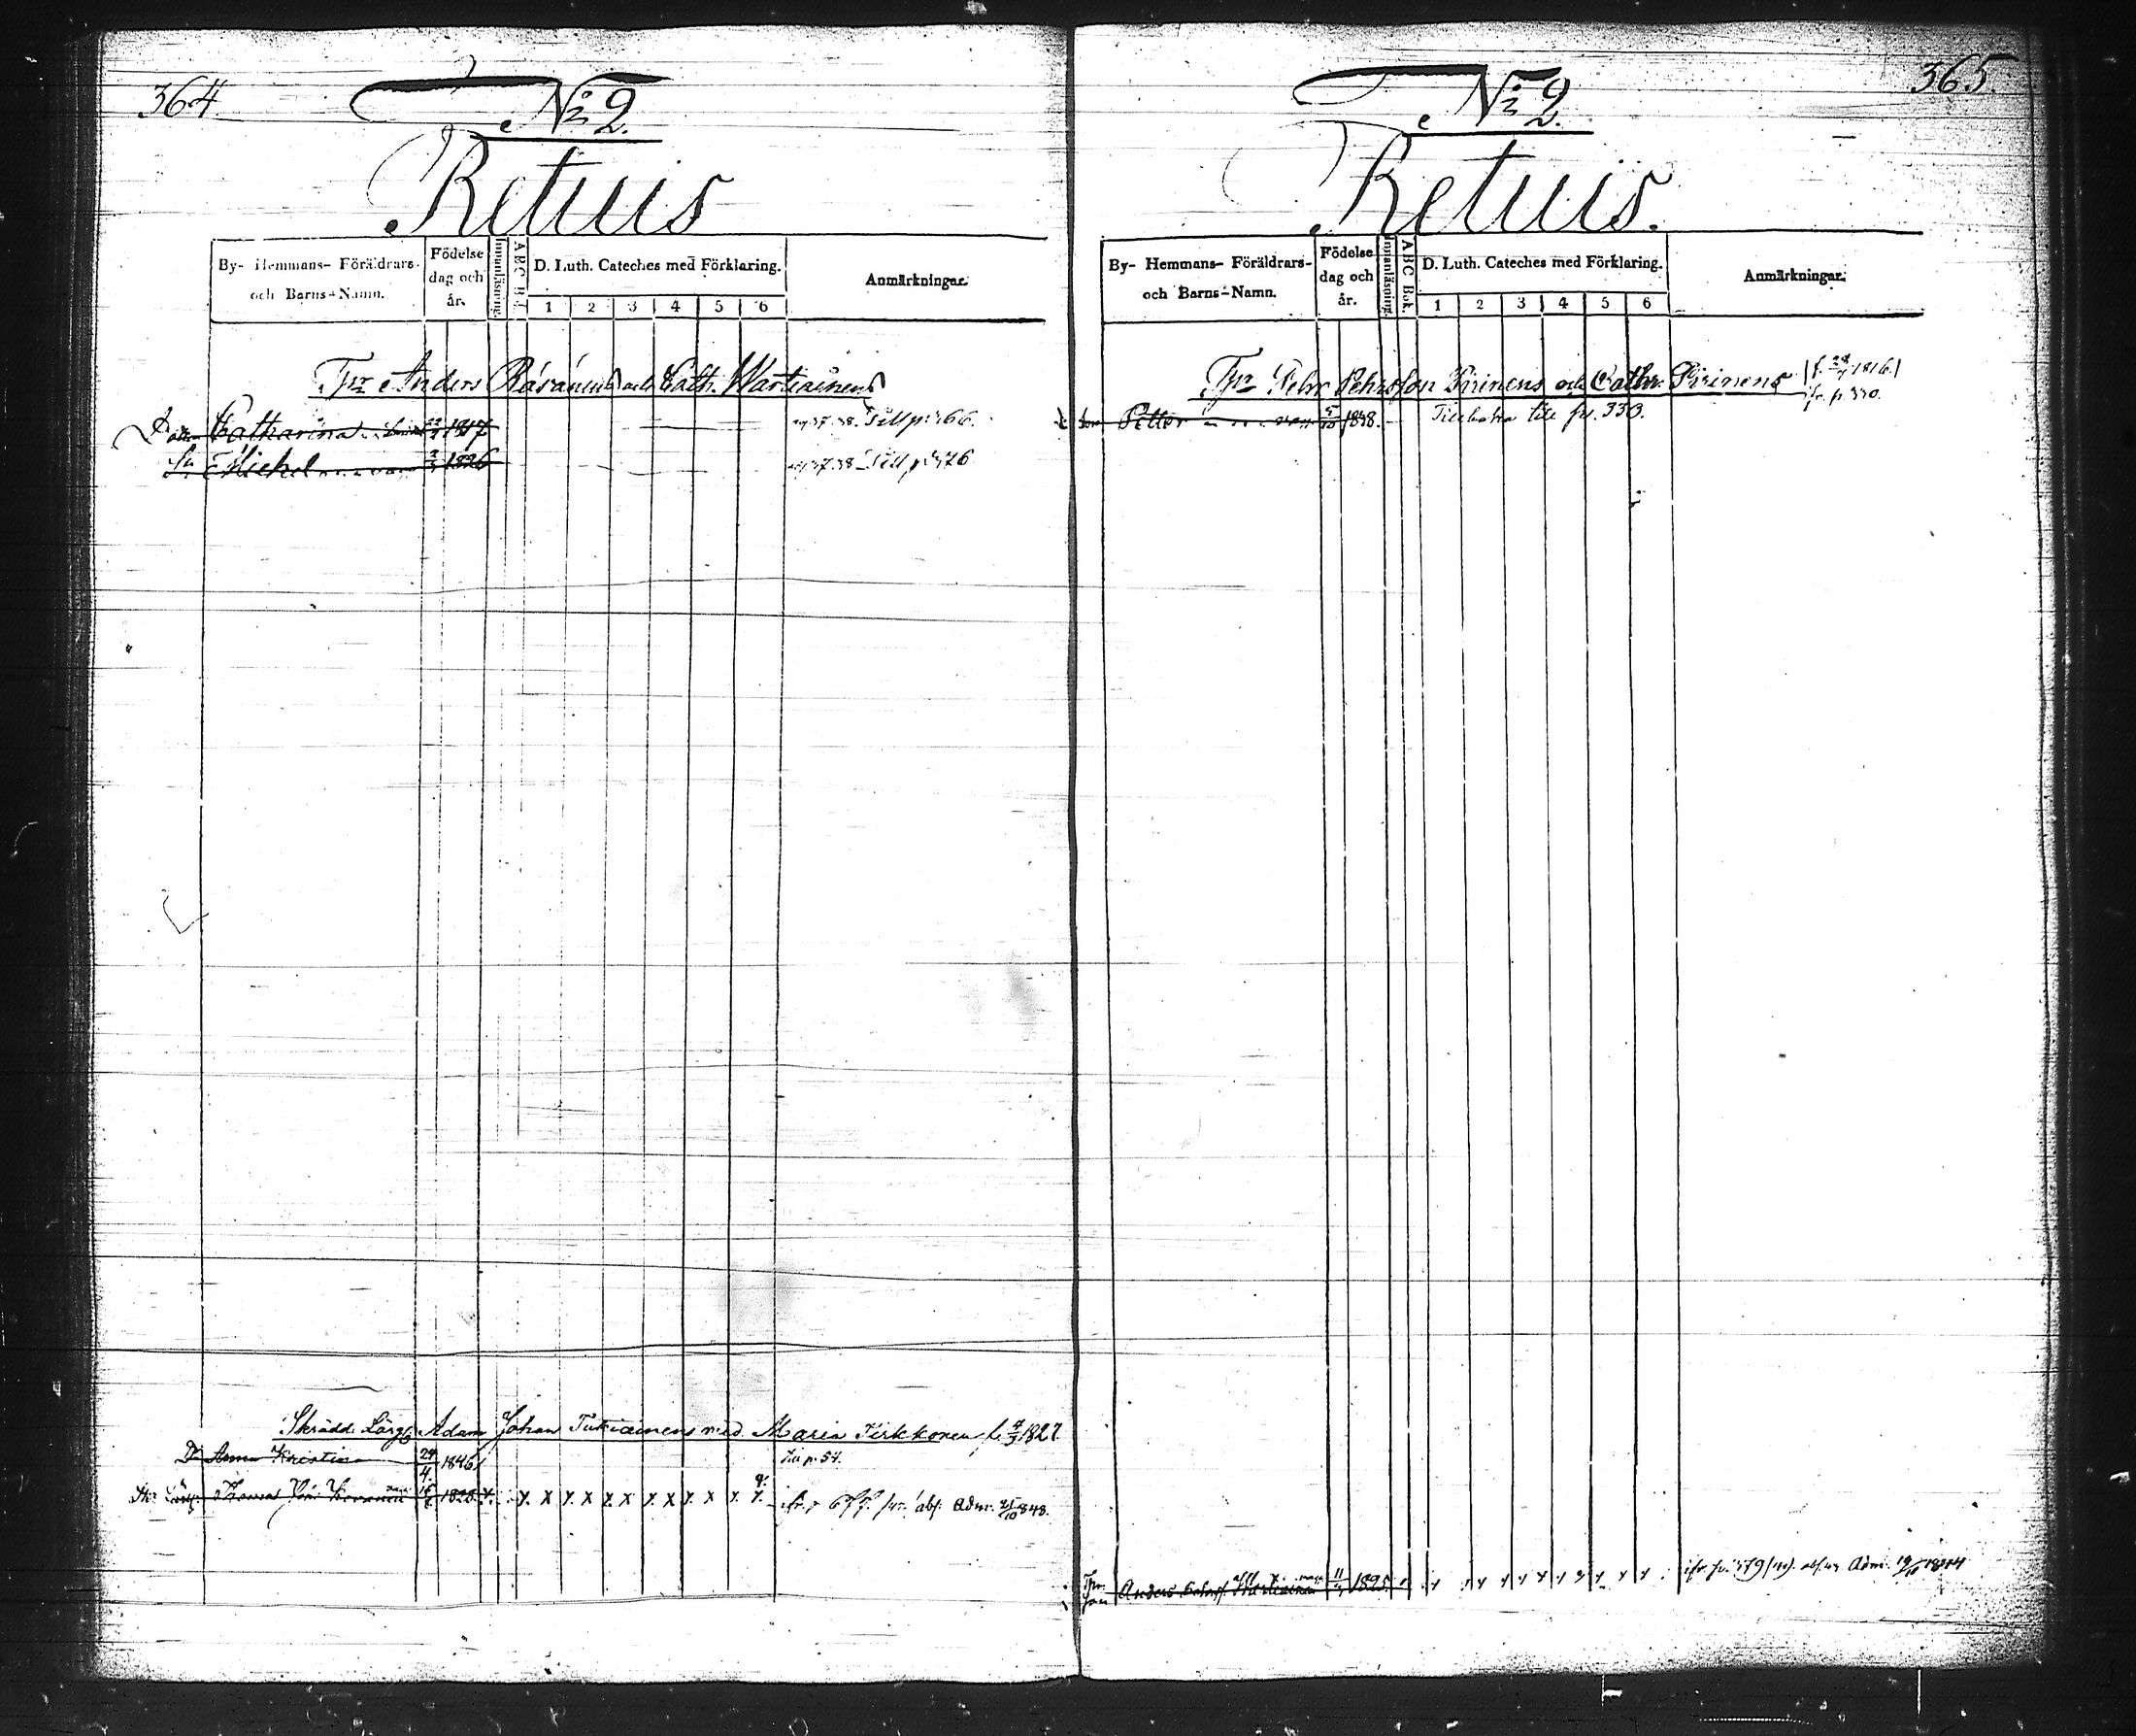 364.
No 2.
Retuis
By- Hemmans- Föräldrars-
och Barns-Namn.
Födelse
dag och
år.
Innanläsning.
ABC B
D. Luth. Cateches med Förklaring.
1 2 3 4 5 6
Anmärkningar.
Anders Räsänens och Cath. Wartiainens
Catharina 1817 37.38. Till p. 366.
Michel 1826 37.38 Till p. 376
Adam Johan Tukiainens med Maria Kirkkonen f. 4/3 1827.
Dr Anna Kristina 24/4. 1846
Thomas 1828 x x x x x x x x x abs. Adm. 25/10 848.
365.
No 2.
Retuis.
By- Hemmans- Föräldrars-
och Barns-Namn.
Födelse
dag och
år.
Innanläsning.
ABC Bok.
D. Luth. Cateches med Förklaring.
1 2 3 4 5 6
Anmärkningar.
Pehr Pehrsson Pirinens och Cathr. Pirinens 1816
fr. p. 330.
Petter 1838. Tillbaka till p. 330.
Anders Wartiainen 11 1825 Adm. 19/10 1844